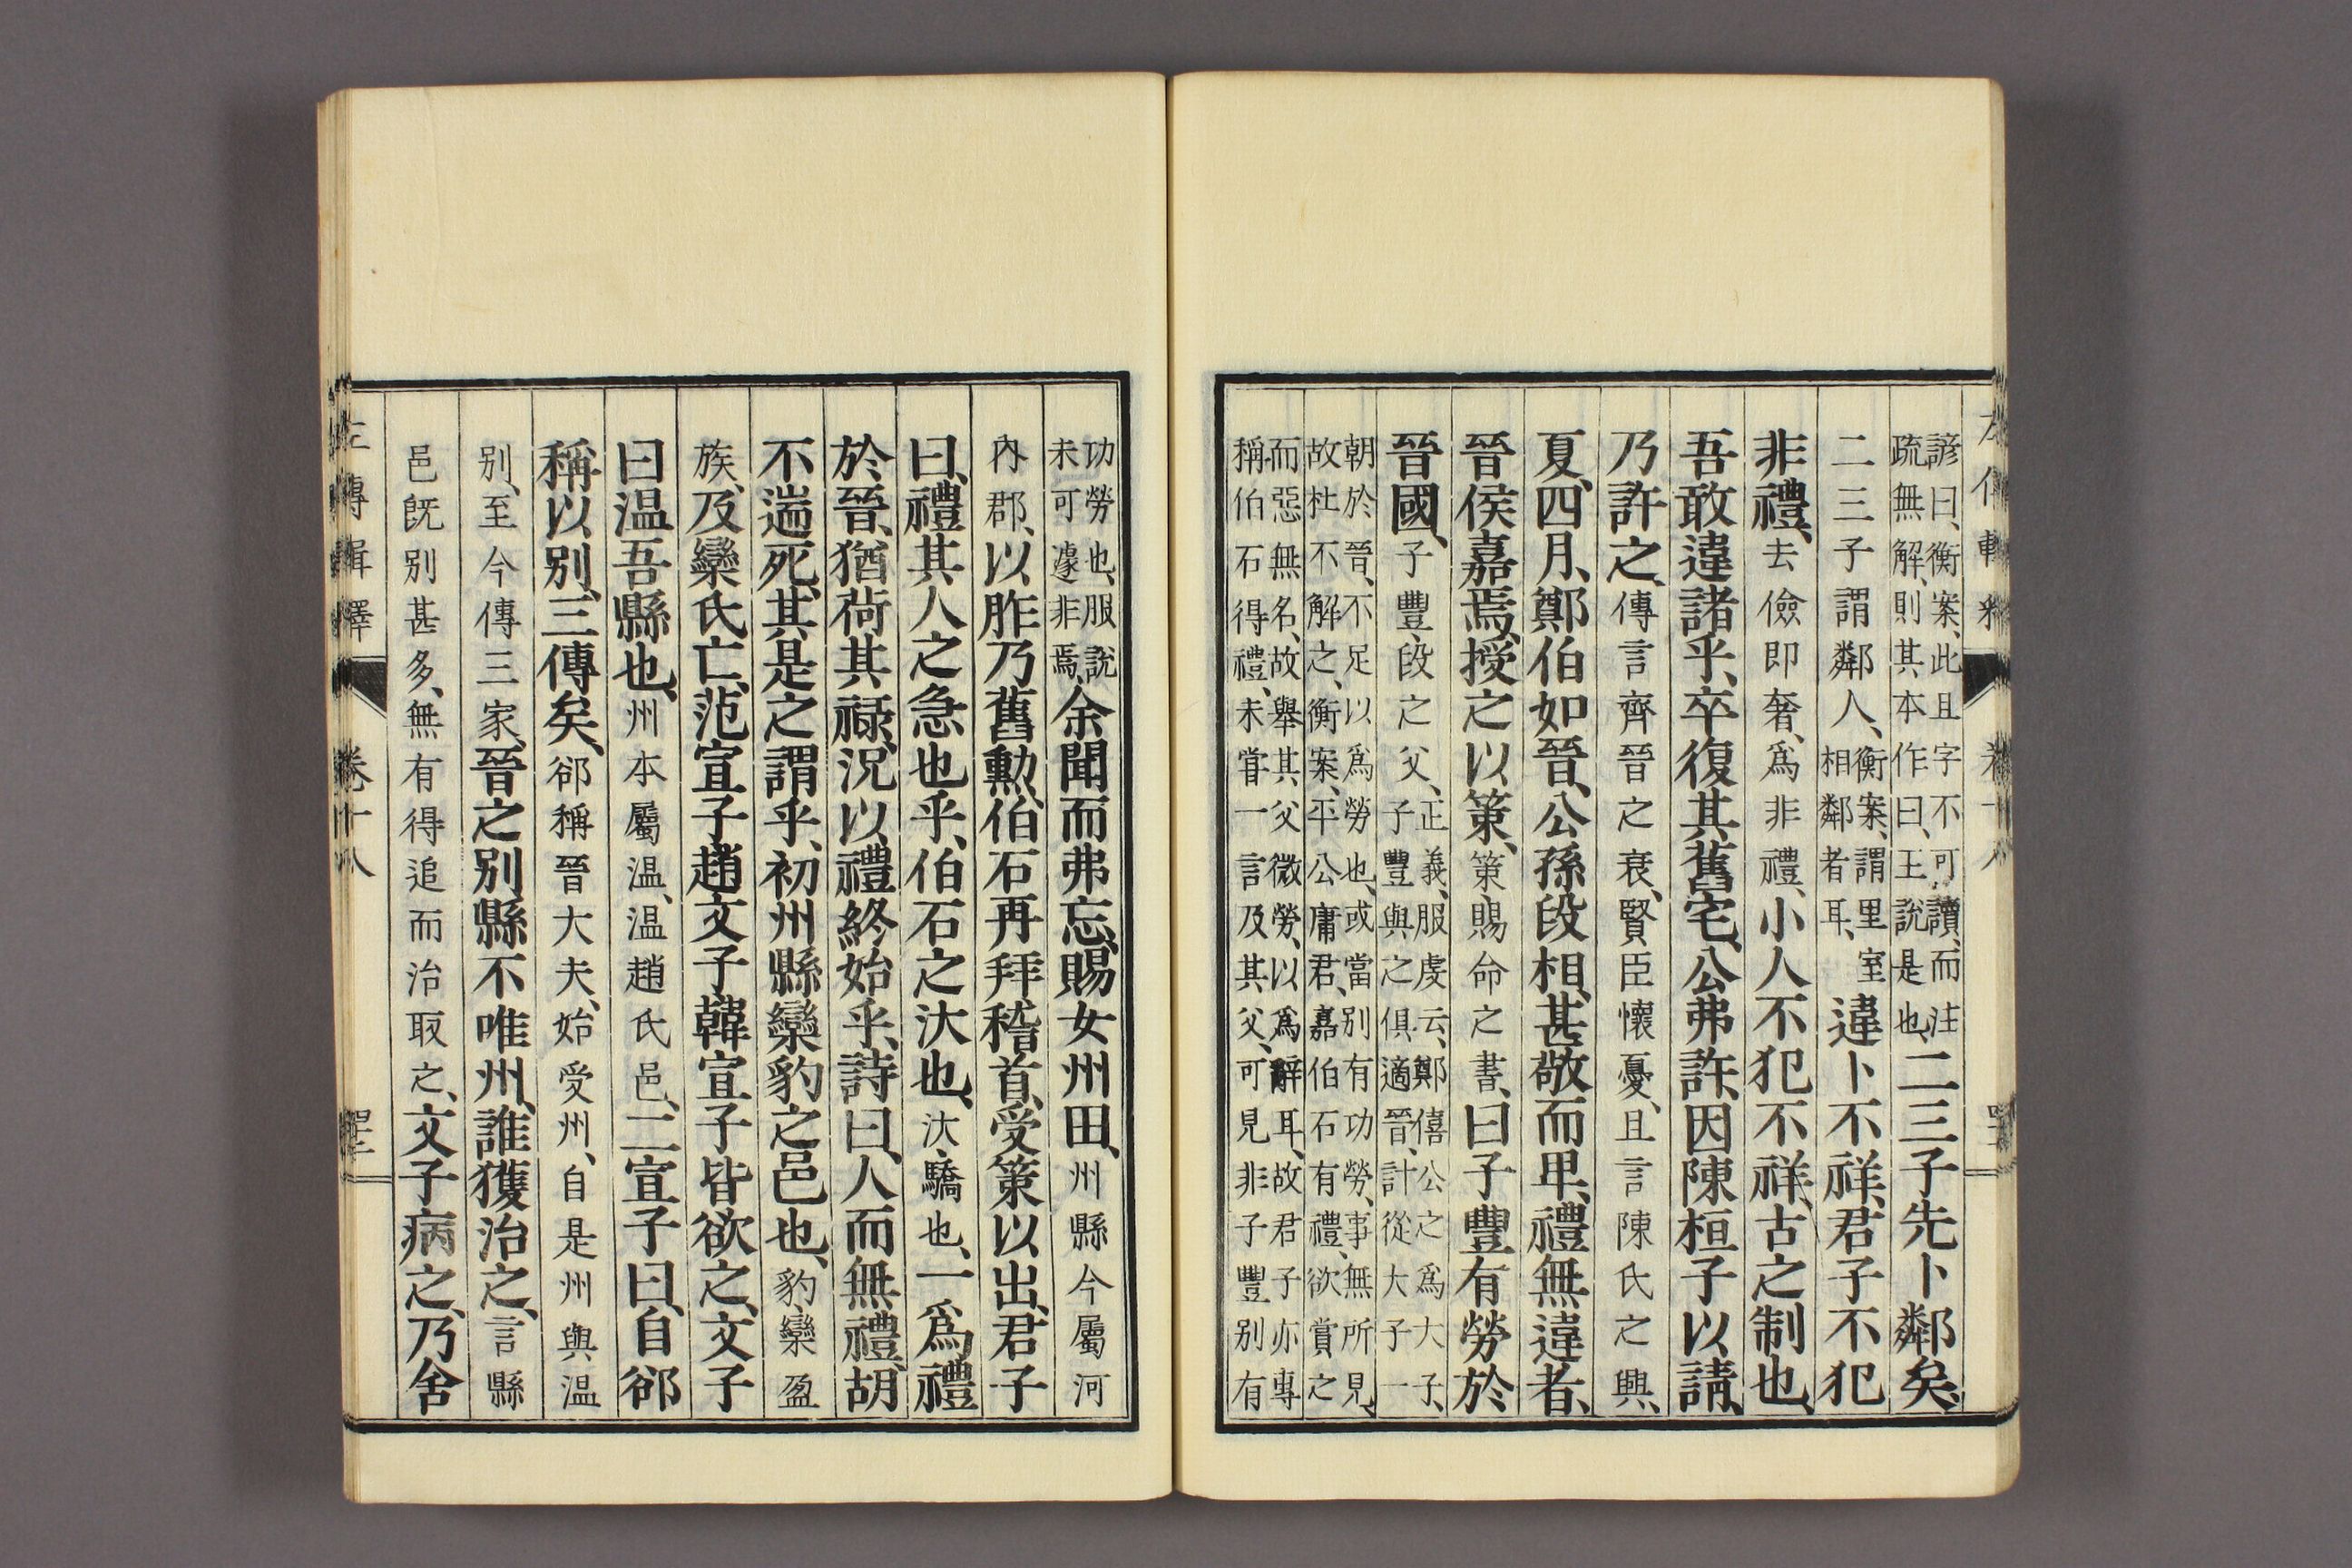 諺曰、衡案、此且字不可讀、而注
疏無解、則其本作曰、王說是也、二三子先卜鄰矣、
二三子謂鄰人、衡案、謂里室
相鄰者耳、違卜不祥、君子不犯
非禮、去儉即奢、爲非禮、小人不犯不祥、古之制也、
吾敢違諸乎、卒復其舊宅、公弗許、因陳桓子以請、
乃許之、傳言齊晉之衰、賢臣懷憂、且言陳氏之興、
夏、四月、鄭伯如晉、公孫段相、甚敬而卑、禮無違者、
晉侯嘉焉、授之以策、策、賜命之書、曰子豐有勞於
晉國、子豐、段之父、正義、服虔云、鄭僖公之爲大子、
子豐與之俱適晉、計從大子一
朝於晉、不足以爲勞也、或當別有功勞、事無所見、
故杜不解之、衡案、平公庸君、嘉伯石有禮、欲賞之
而惡無名、故舉其父微勞、以爲辭耳、故君子亦專
稱伯石得禮、未嘗一言及其父、可見非子豐別有
功勞也、服說
未可遽非焉、余聞而弗忘、賜女州田、州縣今屬河
內郡、以胙乃舊勲、伯石再拜稽首、受策以出、君子
曰、禮其人之急也乎、伯石之汏也、汏、驕也、一爲禮
於晉、猶荷其祿、況以禮終始乎、詩曰、人而無禮、胡
不遄死、其是之謂乎、初州縣欒豹之邑也、豹、欒盈
族、及欒氏亡、范宣子趙文子韓宣子皆欲之、文子
曰温吾縣也、州本屬温、温趙氏邑、二宣子曰、自郤
稱以別、三傳矣、郤稱晉大夫、始受州、自是州與温
別、至今傳三家、晉之別縣不唯州、誰獲治之、言縣
邑既別甚多、無有得追而治取之、文子病之、乃舍
左傳輯釋
卷十八